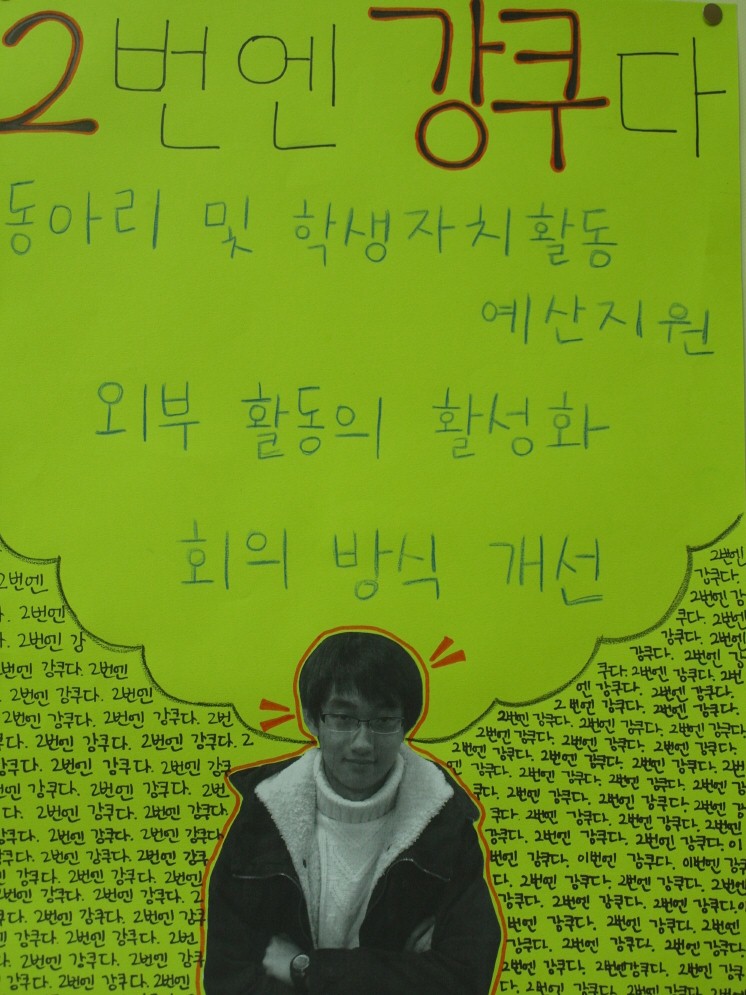 2번엔 강쿠다
동아리 및 학생자치활동
예산지원
외부 활동의 활성화
회의 방식 개선
2번엔
다. 2번엔
다. 2번엔 강
번엔 강쿠다. 2번엔
2번엔 강쿠다. 2번엔
2번엔 강쿠다. 2번엔 강쿠다. 2번
쿠다. 2번엔 강쿠다. 2번엔 강쿠다. 2
강쿠다. 2번엔 강쿠다. 2번엔 강쿠
번엔 강쿠다. 2번엔 강쿠다. 2번엔
다. 2번엔 강쿠다. 2번엔 강쿠다.
강쿠다. 2번엔 강쿠다. 2번엔 강쿠다
쿠다. 2번엔 강쿠다. 2번엔 강쿠
강쿠다. 2번엔 강쿠다. 2번엔
번엔 강쿠다. 2번엔 강쿠다. 2
쿠다. 2번엔 강쿠다. 2번엔 강쿠
2번엔 강쿠다. 2번엔 강쿠다. 2번
다. 2번엔 강쿠다. 2번엔 강쿠
강쿠다. 2번엔 강쿠다. 2번엔
2번엔
강쿠다.
2번엔 강
쿠다. 2번엔
강쿠다. 2번엔
강쿠다. 2번엔 강
쿠다. 2번엔 강쿠다. 2번
엔 강쿠다. 2번엔 강쿠다.
2번엔 강쿠다. 2번엔 강쿠다.
2번엔 강쿠다. 2번엔 강쿠다. 2번엔
2번엔 강쿠다. 2번엔 강쿠다. 2번엔 강쿠다.
2번엔 강쿠다. 2번엔 강쿠다. 2번엔 강쿠다.
엔 강쿠다. 2번엔 강쿠다. 2번엔 강쿠다.
쿠다. 2번엔 강쿠다. 2번엔 강쿠다. 2번엔 강
쿠다. 2번엔 강쿠다. 2번엔 강쿠다. 2번엔
강쿠다. 2번엔 강쿠다. 2번엔 강쿠다. 이
번엔 강쿠다. 이번엔 강쿠다. 이번엔 강쿠
다. 2번엔 강쿠다. 2번엔 강쿠다. 2번엔
강쿠다. 2번엔 강쿠다. 2번엔 강쿠다. 이
번엔 강쿠다. 2번엔 강쿠다. 2번엔
강쿠다. 2번엔 강쿠다. 2번엔 강쿠다.
2번엔 강쿠다. 2번엔강쿠다. 2번엔 강쿠
다. 2번엔 강쿠다. 2번엔 강쿠다.